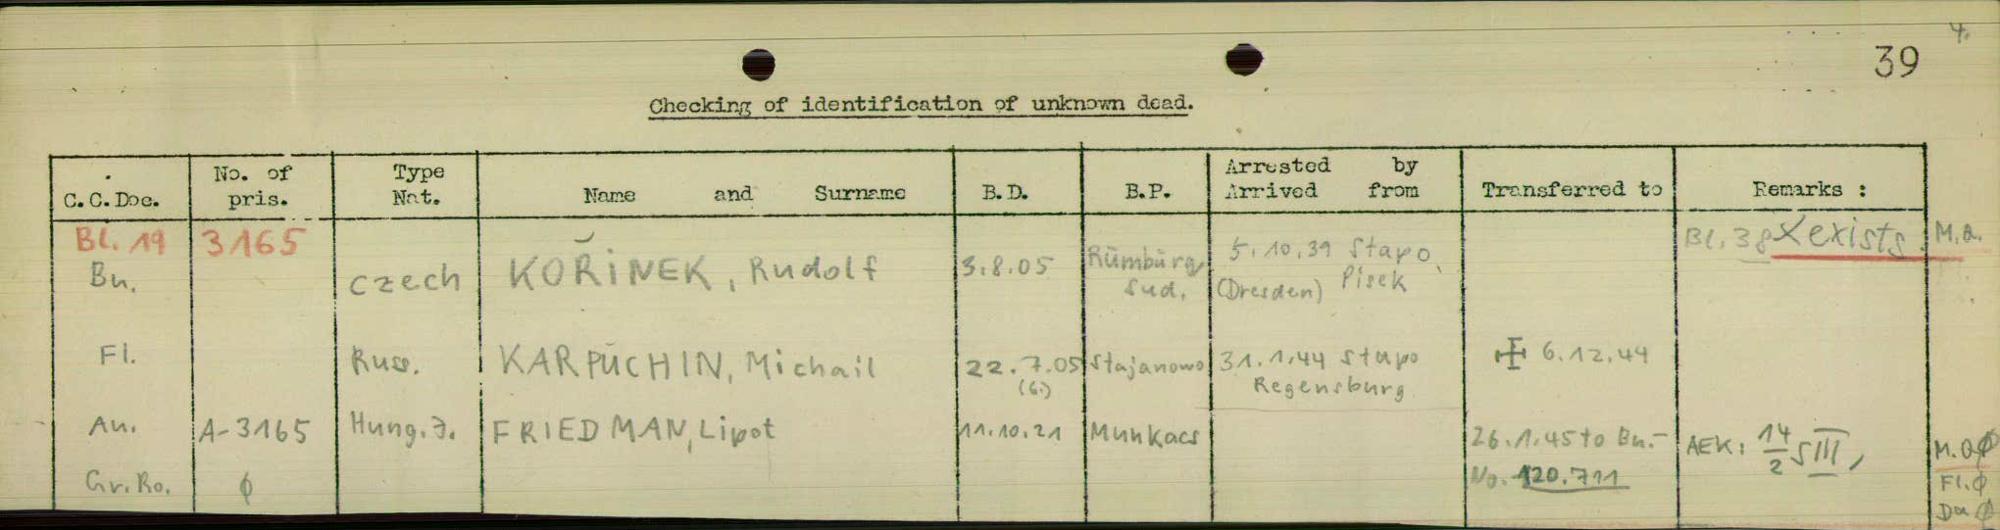 4.
39
Checking of identification of unknown dead.
C.C.Doc. No. of pris. Type Nat. Name and Surname B.D. B.P. Arrested by Arrived from Transferred to Remarks :
Bl. 19 3165 Bl. 38 exists. M.a.
Bu. czech KOŘINEK, Rudolf 3.8.05 Rümbürg Sud. 5.10.39 Stapo Pisek (Dresden)
Fl. Russ. KARPŪCHIN, Michail 22.7.05 (6.) Stajanowo 31.1.44 Stapo Regensburg 6.12.44
Au. A-3165 Hung.J. FRIEDMAN, Lipot 11.10.21 Munkacs 26.1.45 to Bu.- AEK: 14/2 S III, M.a ϕ
Gr.Ro. ϕ No. 120.711 Fl. ϕ
Da ϕ